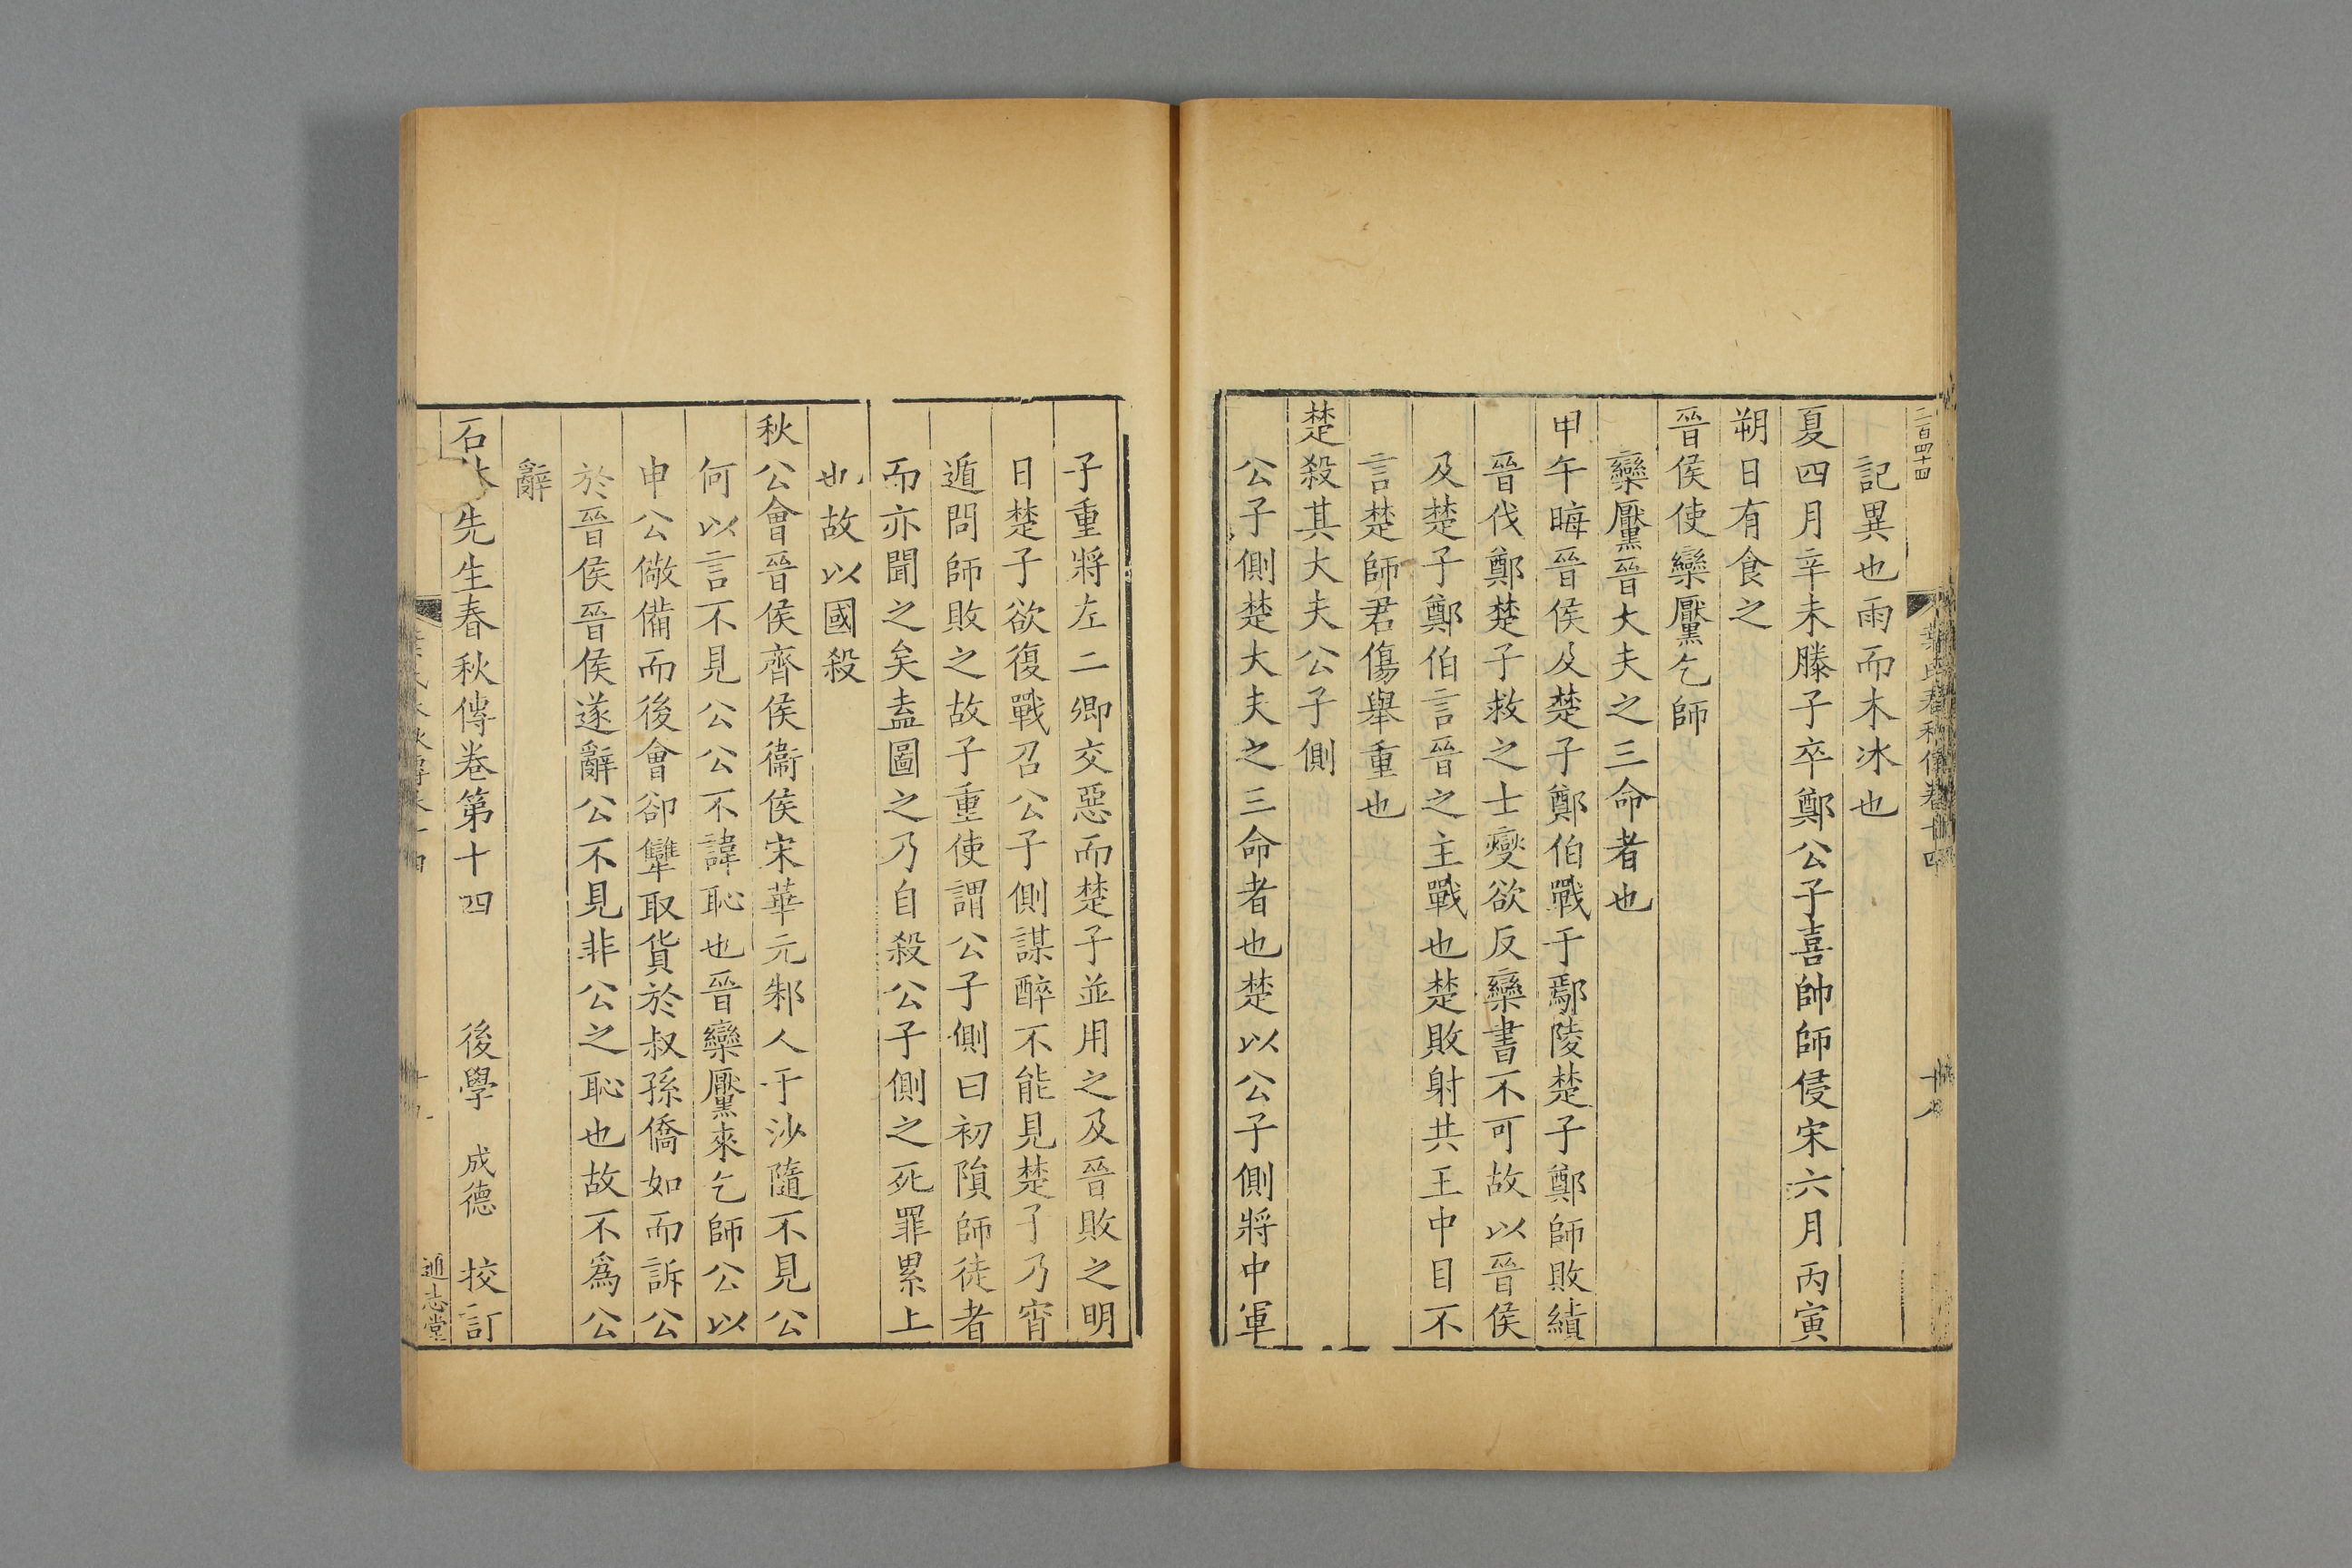 二百四十四
記異也雨而木冰也
夏四月辛未滕子卒鄭公子喜帥師侵宋六月丙寅
朔日有食之
晉侯使欒黶乞師
欒黶晉大夫之三命者也
甲午晦晉侯及楚子鄭伯戰于鄢陵楚子鄭師敗績
晉伐鄭楚子救之士燮欲反欒書不可故以晉侯
及楚子鄭伯言晉之主戰也楚敗射共王中目不
言楚師君傷舉重也
楚殺其大夫公子側
公子側楚大夫之三命者也楚以公子側將中軍
子重將左二卿交惡而楚子並用之及晉敗之明
日楚子欲復戰召公子側謀醉不能見楚子乃宵
遁問師敗之故子重使謂公子側曰初隕師徒者
而亦聞之矣盍圖之乃自殺公子側之死罪累上
也故以國殺
秋公會晉侯齊侯衞侯宋華元邾人于沙隨不見公
何以言不見公公不諱恥也晉欒黶來乞師公以
申公儆備而後會郤犨取貨於叔孫僑如而訴公
於晉侯晉侯遂辭公不見非公之恥也故不爲公
辭
石林先生春秋傳卷第十四 後學 成德 校訂
通志堂